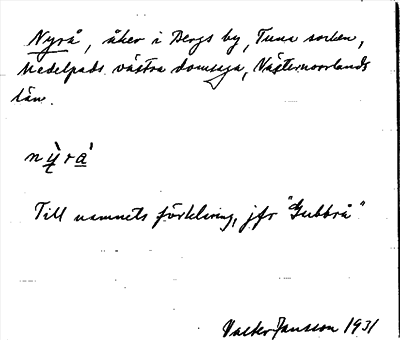 Nyrå, åker i Bergs by, Tuna socken,
Medelpads västra domsaga, Västernorrlands
län.
nỳrà
Till namnets förklaring, jfr "Gubbrå"
Valter Jansson 1931